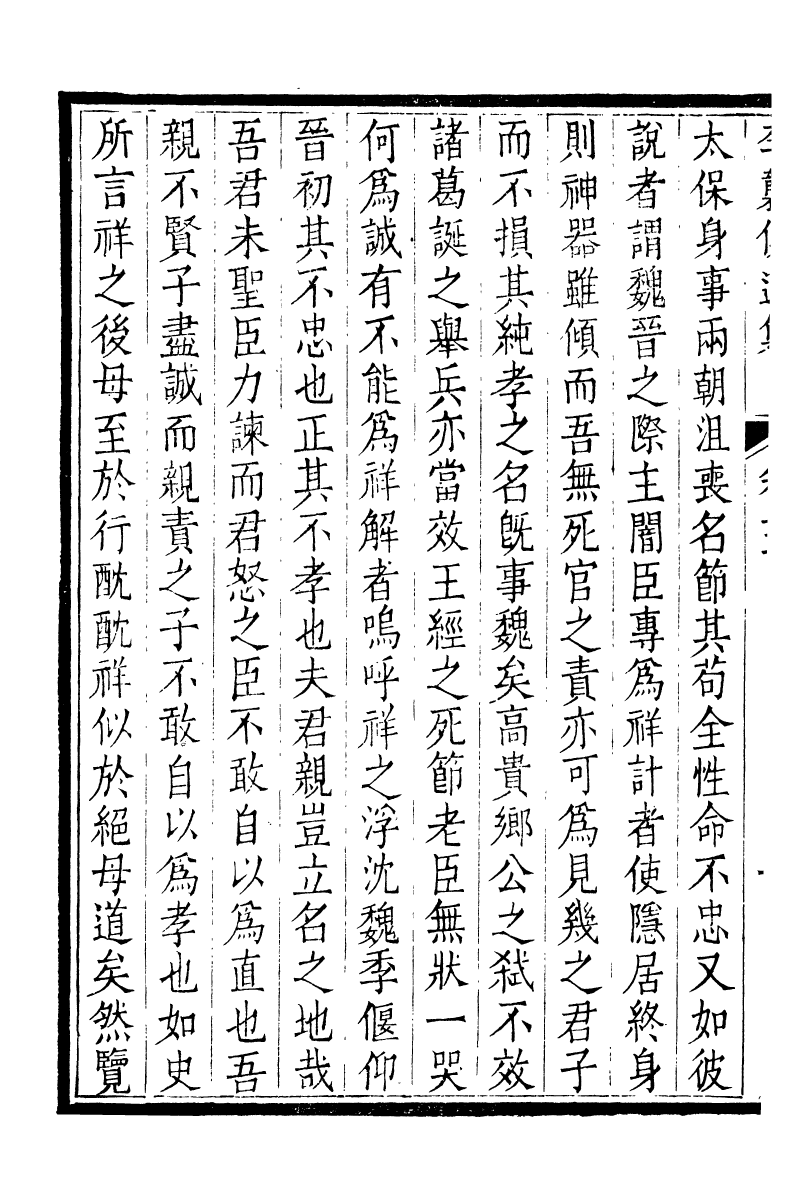 太保身事兩朝沮喪名節其苟全性命不忠又如彼
說者謂魏晉之際主闇臣專爲祥計者使隱居終身
則神器雖傾而吾無死官之責亦可爲見幾之君子
而不損其純孝之名旣事魏矣高貴鄉公之弑不效
諸葛誕之舉兵亦當效王經之死節老臣無狀一哭
何爲誠有不能爲祥解者嗚呼祥之浮沈魏季偃仰
晉初其不忠也正其不孝也夫君親豈立名之地哉
吾君未聖臣力諫而君怒之臣不敢自以爲直也吾
親不賢子盡誠而親責之子不敢自以爲孝也如史
所言祥之後母至於行酖酖祥似於絕母道矣然覽